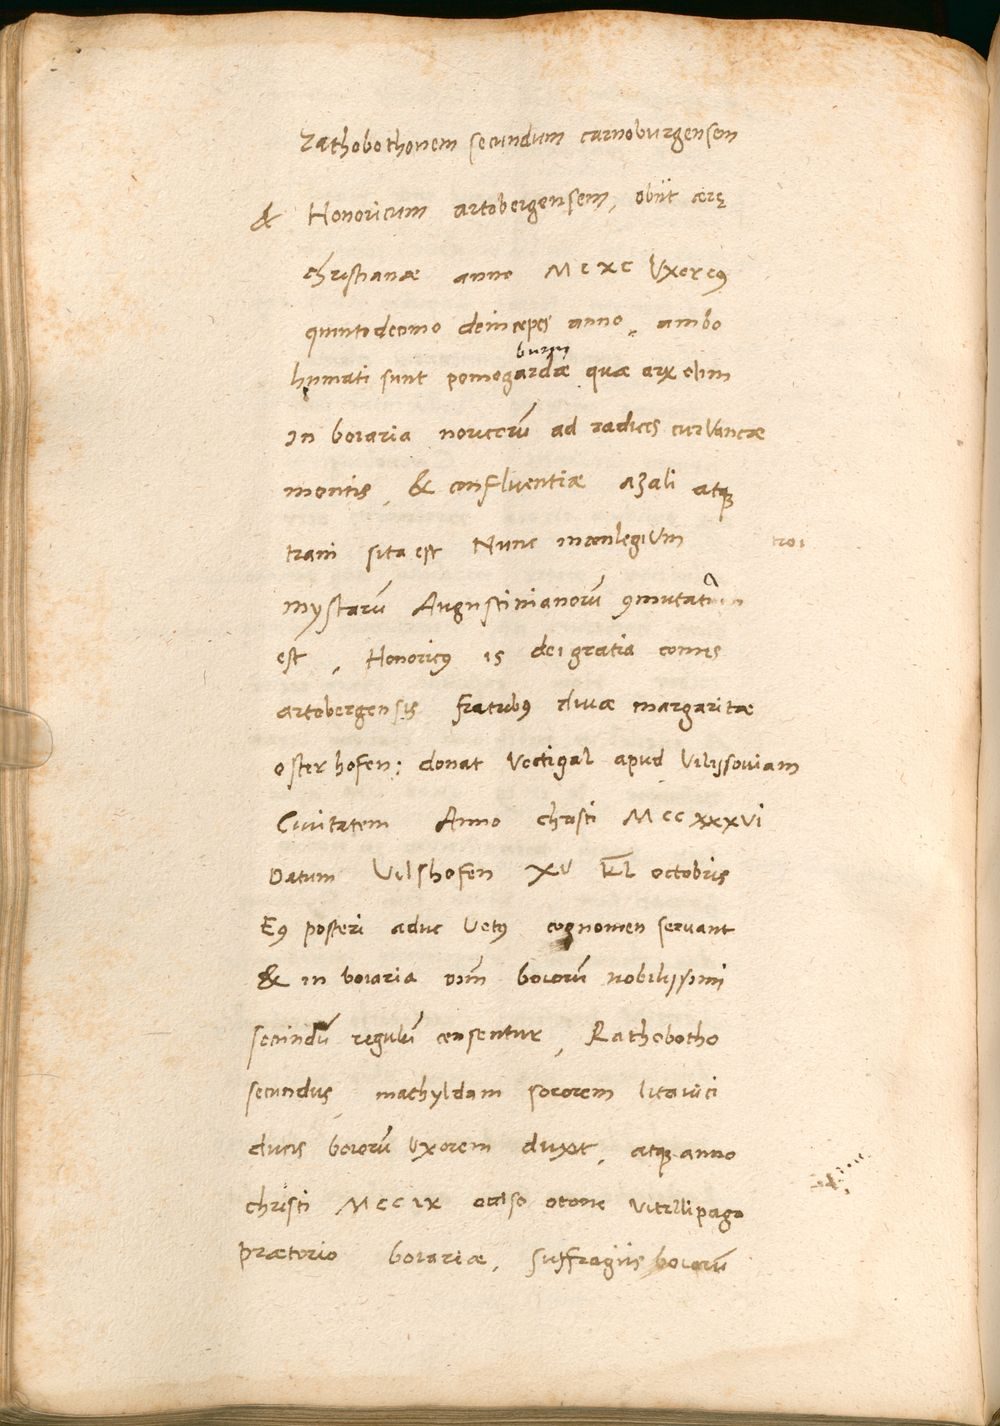 Rathobothonem secundum carnoburgensem
& Honoricum artobergensem, obiit ærę
christianæ anno M C XC Uxor eꝰ
quintodecimo deinceps anno, ambo
humati sunt pomogardæ quæ arx olim
burin
In boiaria noricorū ad radices curvancæ
montis, & confluentiæ Azali atqꝫ
trani sita est Nunc in collegium
mystarū Augustinianorū ꝯmutatum
est, Honoricꝰ is dei gratia comes
artobergensis fratribꝰ divæ margaritæ
osterhofen: donat Vectigal apud Vilissoviam
Civitatem Anno christi M CC XXXVI
Datum Vilshofen XV kl̄ octobris
Eꝰ posteri aduc Vetꝰ cognomen servant
& in boiaria oīm boiorū nobilissimi
secundū regulū censentur, Rathobotho
secundus, mathyldam sororem litavici
ducis boiorū Uxorem duxit, atqꝫ anno
christi M CC IX occiso otone Vitellipago
prætorio boiariæ, suffragiis boiorū